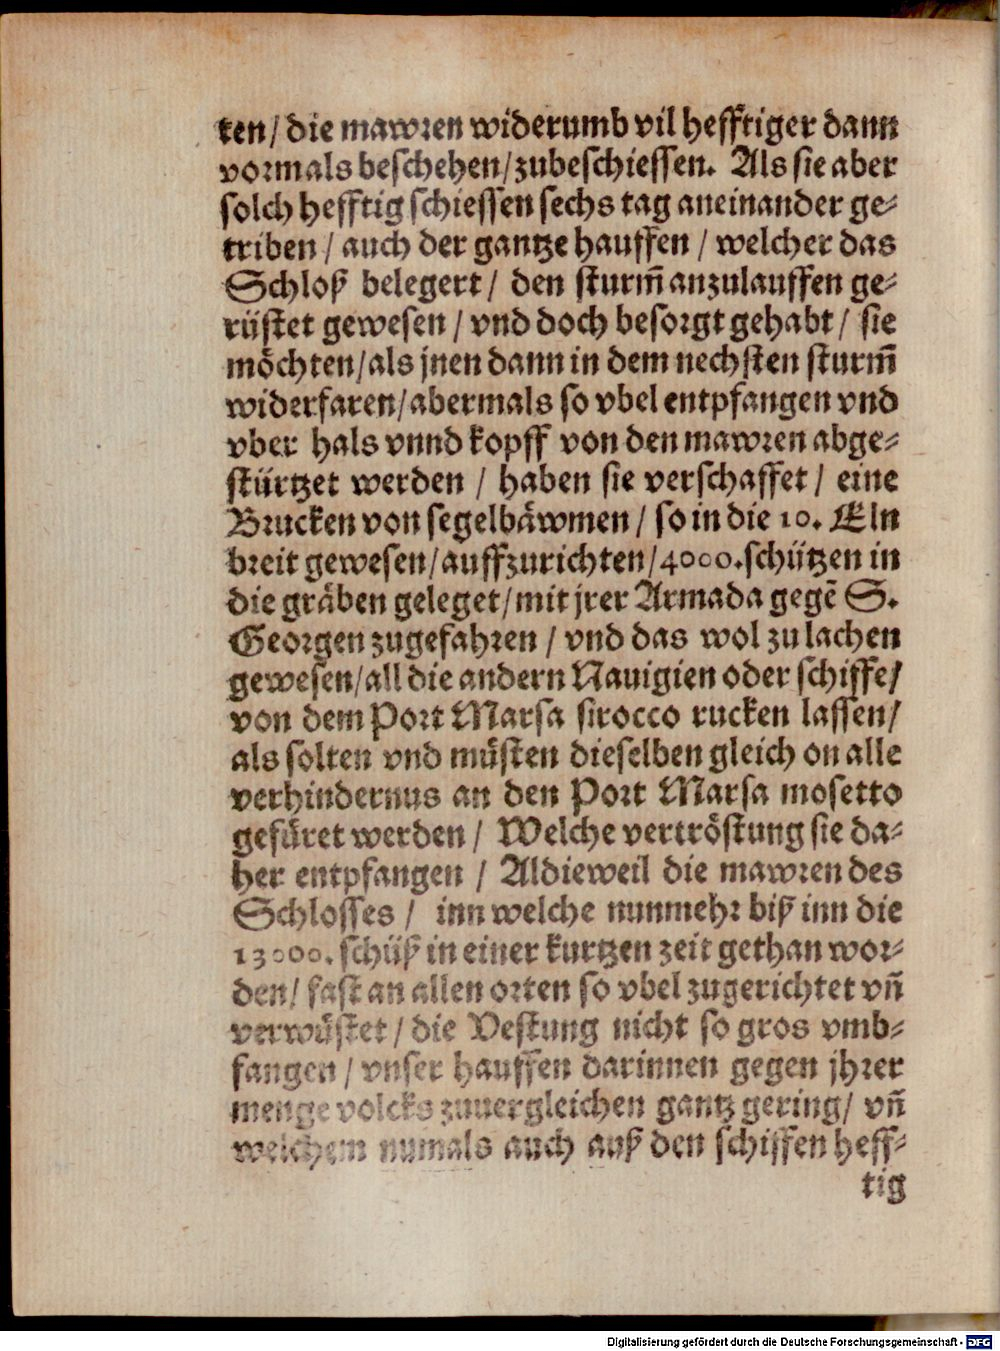 ten/ die mawren widerumb vil hefftiger dann
vormals beschehen/ zubeschiessen. Als sie aber
solch hefftig schiessen sechs tag aneinander ge-
triben / auch der gantze hauffen / welcher das
Schloß belegert/ den sturm̃ anzulauffen ge-
rüstet gewesen / vnd doch besorgt gehabt / sie
möchten/ als jnen dann in dem nechsten sturm̃
widerfaren/ abermals so vbel entpfangen vnd
vber hals vnnd kopff von den mawren abge-
stürtzet werden / haben sie verschaffet / eine
Brucken von segelbäwmen / so in die 10. Eln
breit gewesen/ auffzurichten/ 4000. schützen in
die gräben geleget/ mit jrer Armada gegẽ S.
Georgen zugefahren / vnd das wol zu lachen
gewesen/ all die andern Nauigien oder schiffe/
von dem Port Marsa sirocco rucken lassen/
als solten vnd müsten dieselben gleich on alle
verhindernus an den Port Marsa mosetto
gefüret werden / Welche vertröstung sie da-
her entpfangen / Aldieweil die mawren des
Schlosses / inn welche nunmehr biß inn die
13000. schüß in einer kurtzen zeit gethan wor-
den/ fast an allen orten so vbel zugerichtet vñ
verwüstet / die Vestung nicht so gros vmb-
fangen / vnser hauffen darinnen gegen jhrer
menge volcks zuuergleichen gantz gering/ vñ
welchem numals auch auß den schiffen heff-
tig
Digitalisierung gefördert durch die Deutsche Forschungsgemeinschaft - DFG